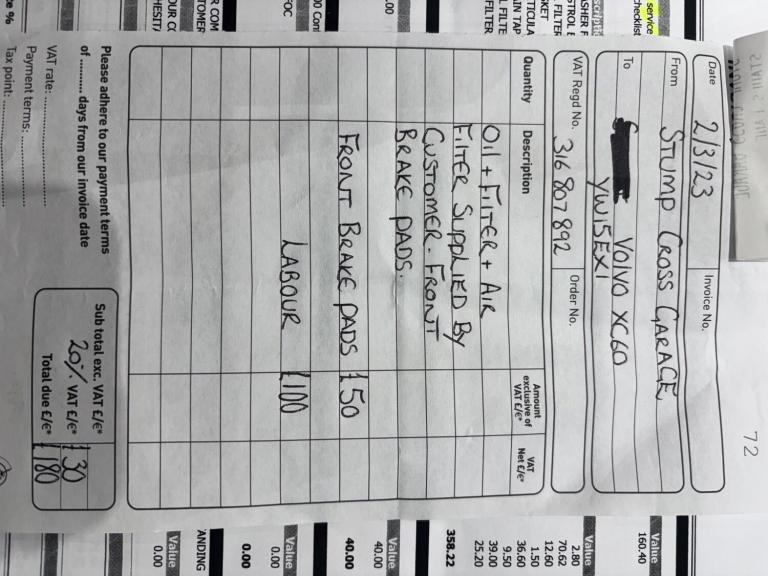 72
Date 2/3/23 Invoice No.
From STUMP CROSS GARAGE
To VOLVO XC60
YW15EXT
VAT Regd No. 316 807 892 Order No.
Quantity Description Amount exclusive of VAT £/€* VAT Net £/€*
OIL + FILTER + AIR
FILTER SUPPLIED BY
CUSTOMER. FRONT
BRAKE PADS.
FRONT BRAKE PADS £50
LABOUR £100
Please adhere to our payment terms
of .......... days from our invoice date
VAT rate:
Payment terms:
Tax point:
Sub total exc. VAT £/€*
20% VAT £/€* £30
Total due £/€* £180
service
checklist
Value
160.40
Value
2.80
70.62
12.60
1.50
36.60
9.50
39.00
25.20
358.22
Value
40.00
40.00
Value
0.00
0.00
Value
0.00